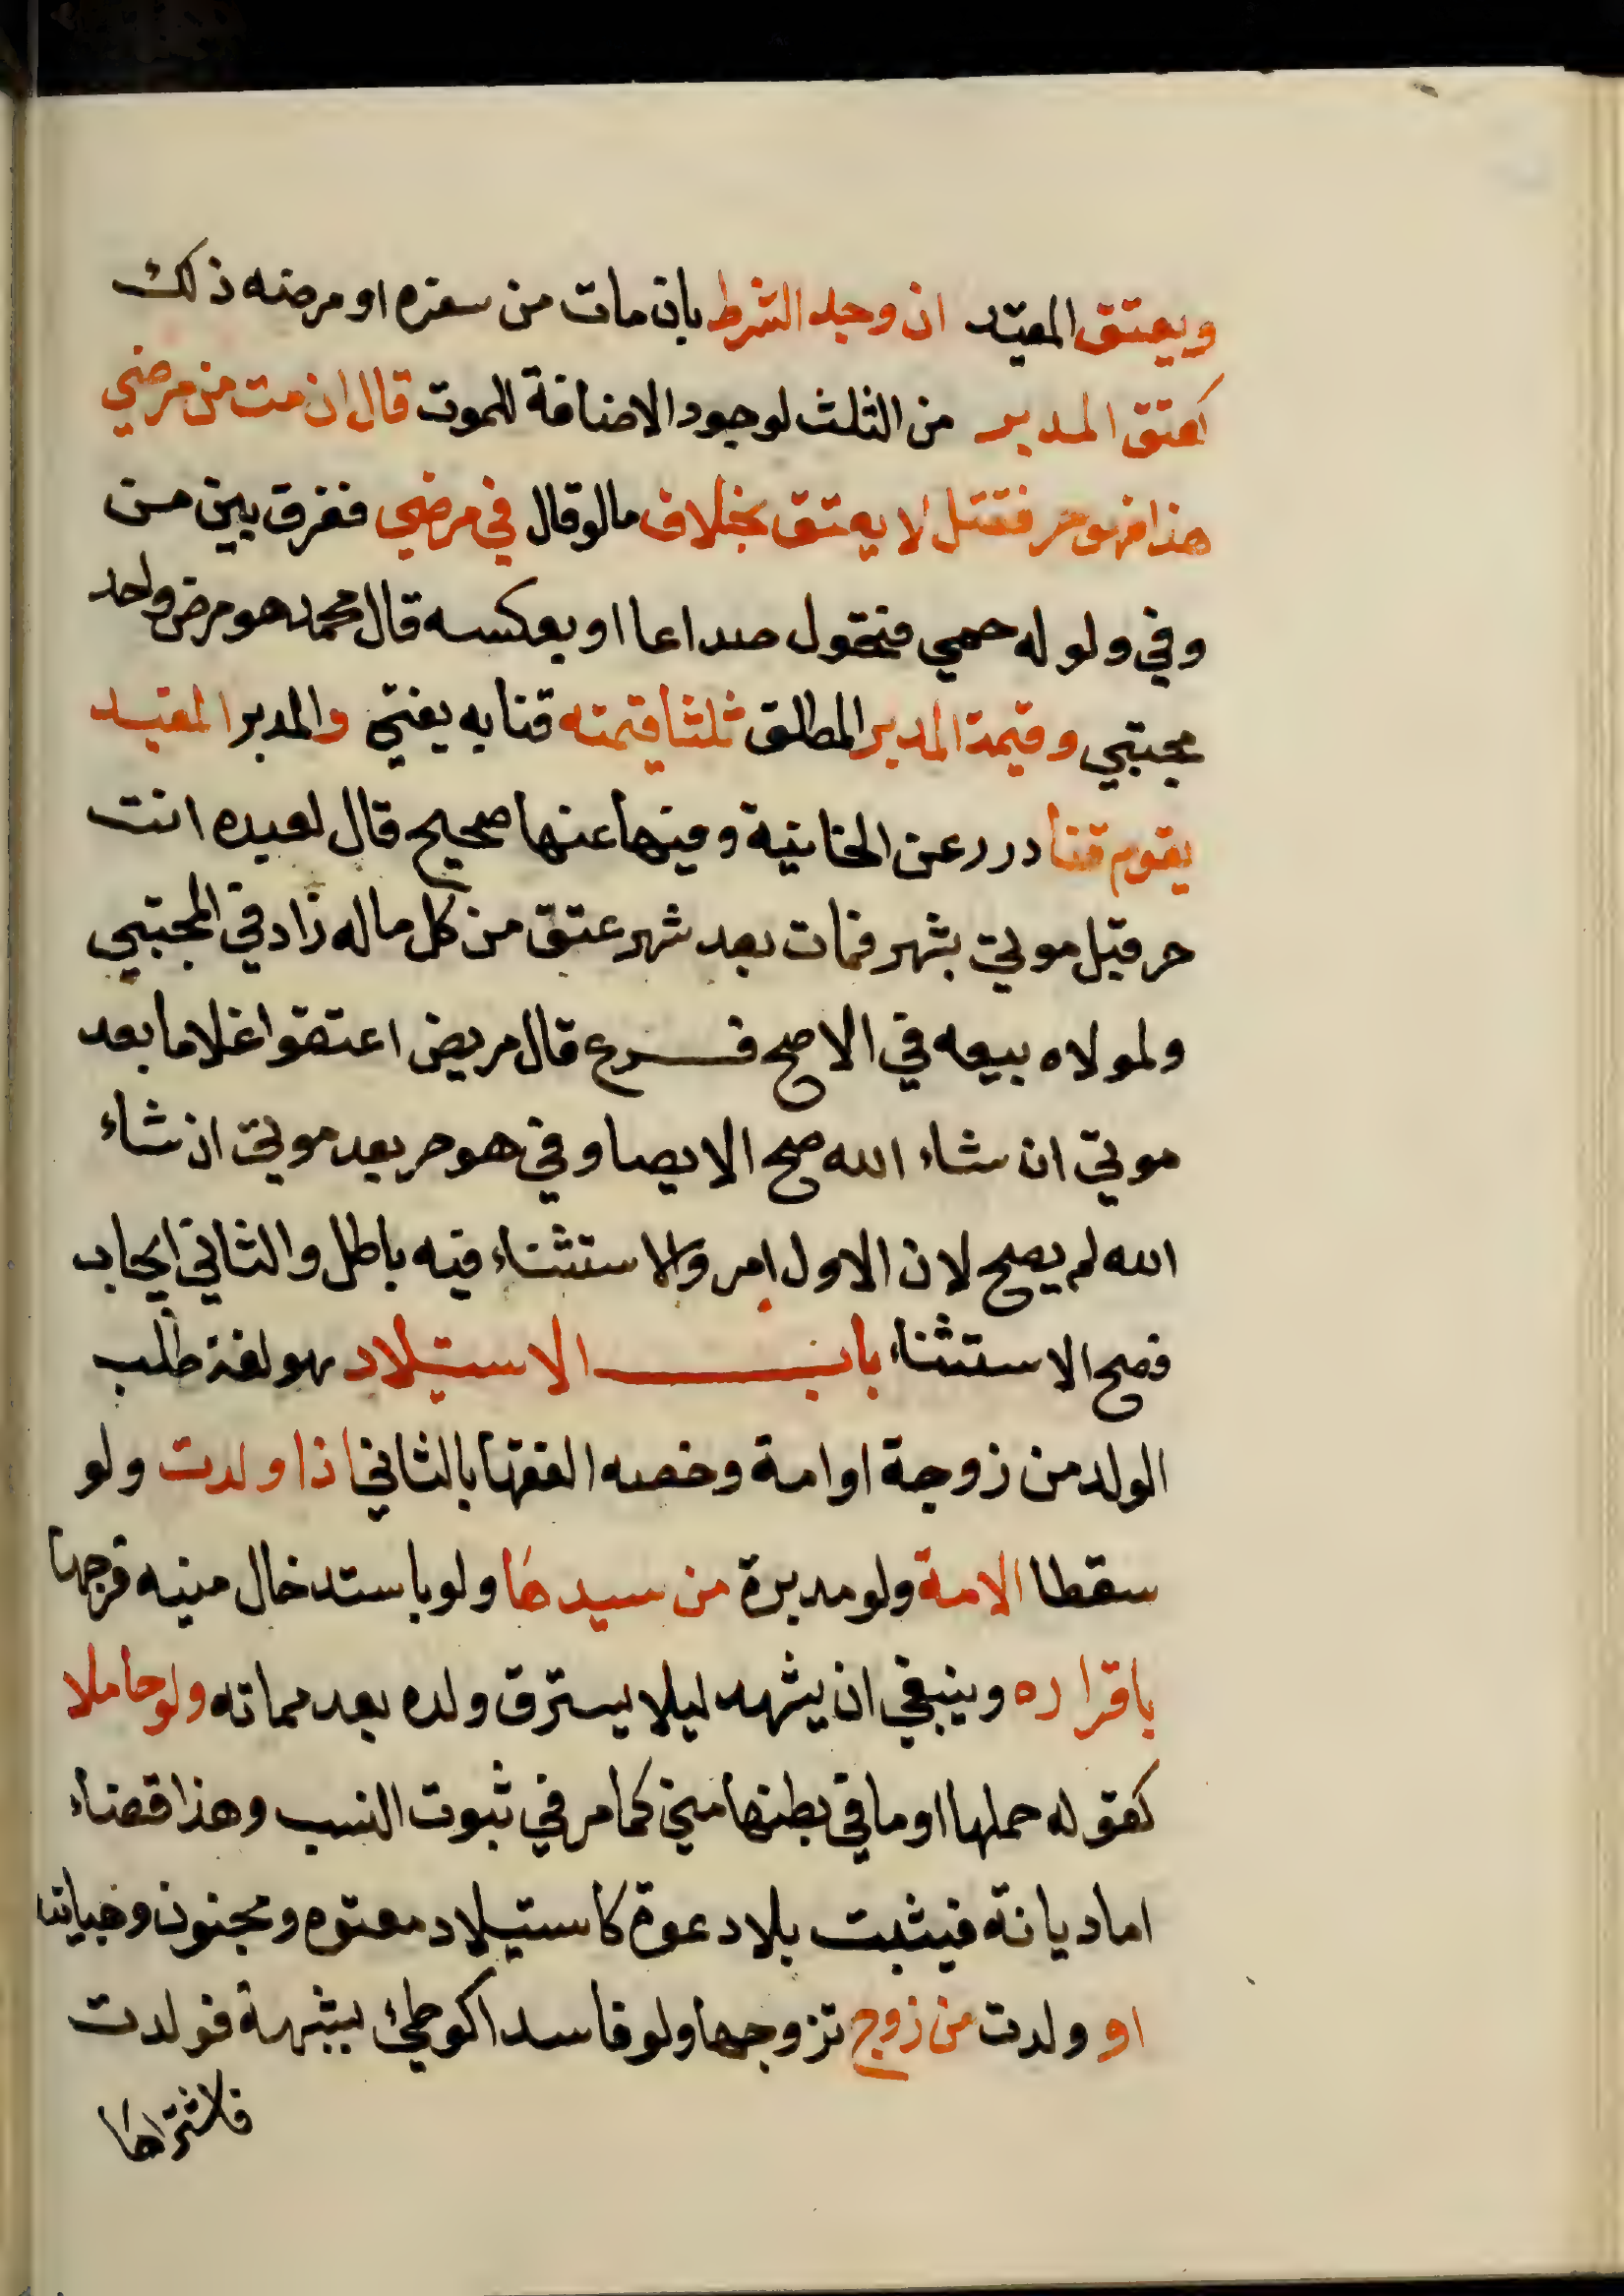 ويعتق المقيد ان وجد الشرط بان مات من سفره او مرضه ذلك
كعتق المدبر من الثلث لوجود الاضافة للموت قال ان مت من مرضي
هذا فهو حر فقتل لا يعتق بخلاف ما لو قال في مرضي ففرق بين من
وفي ولو له حمي فتحول صداعا او بعكسه قال محمد هو مرض واحد
مجتبي وقيمة المدبر المطلق ثلثا قيمته قنا به يفتي والمدبر المقيد
يقوم قنا درر عن الخانية وفيها عنها صحيح قال لعبده انت
حر قبل موتي بشهر فمات بعد شهر عتق من كل ماله زاد في المجتبي
ولمولاه بيعه في الاصح فرع قال مريض اعتقوا غلاما بعد
موتي ان شاء الله صح الايصا وفي هو حر بعد موتي ان شاء
الله لم يصح لان الاول امر والاستثناء فيه باطل والثاني ايجاب
فصح الاستثناء باب الاستيلاد هو لغة طلب
الولد من زوجة او امة وخصه الفقها بالثاني اذا ولدت ولو
سقطا الامة ولو مدبرة من سيدها ولو باستدخال منيه فرجها
باقراره وينبغي ان يشهد ليلا يسترق ولده بعد مماته ولو حاملا
كقوله حملها او ما في بطنها مني كما مر في ثبوت النسب وهذا قضاء
اما ديانة فيثبت بلا دعوة كاستيلاد معتوه ومجنون وهبانيه
او ولدت من زوج تزوجها ولو فاسدا كوطئ بشبهة فولدت
فاشتراها